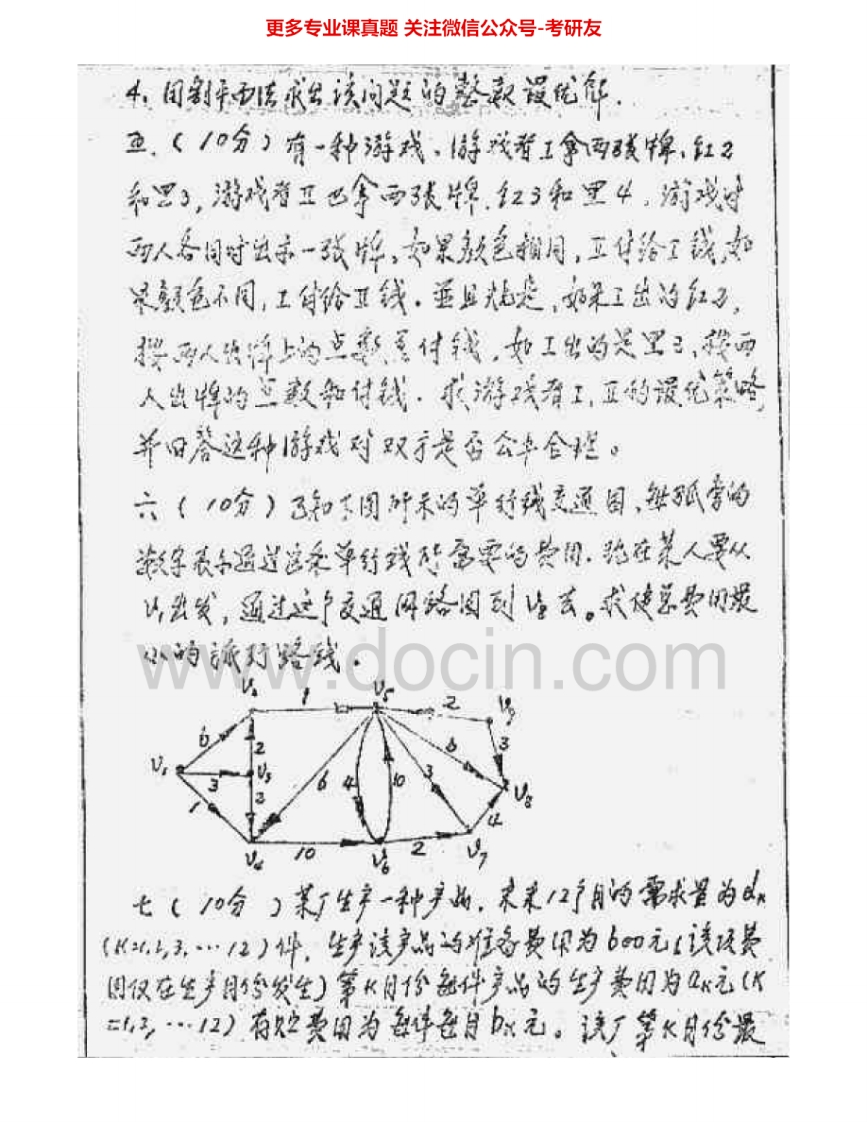 更多专业课真题 关注微信公众号-考研友
4. 用割平面法求出该问题的整数最优解.
五.(10分)有一种游戏,游戏者I拿两张牌,红2
和黑3,游戏者II也拿两张牌,红3和黑4.游戏时
两人各同时出示一张牌,如果颜色相同,II付给I钱,如
果颜色不同,I付给II钱.并且规定,如果I出的红2,
按两人出牌上的点数差付钱,如I出的是黑3,按两
人出牌的点数和付钱.求游戏者I,II的最优策略,
并回答这种游戏对双方是否公平合理。
六(10分)已知下图所示的单行线交通图,每弧旁的
数字表示通过这条单行线所需要的费用.现在某人要从
V1出发,通过这个交通网络图到V8去。求使总费用最
小的旅行路线.
www.docin.com
V2 1 V5 2 V9
6 2 3
V1 3 V3 6 4 10 3 6 V8
1 2 4
V4 10 V6 2 V7
七(10分)某厂生产一种产品,未来12个月的需求量为dk
(K=1,2,3,…12)件,生产该产品的准备费用为600元(该项费
用仅在生产月份发生)第K月份每件产品的生产费用为ak元(K
=1,2,…12)存贮费用为每件每月bk元。该厂第K月份最